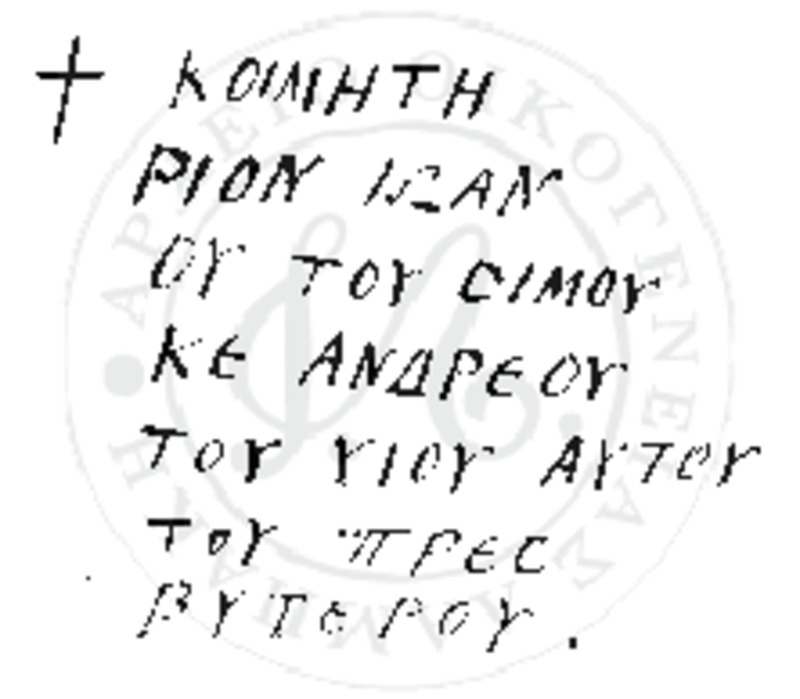 + ΚΟΙΜΗΤΗ
ΡΙΟΝ ΙΩΑΝ
ΟΥ ΤΟΥ CΙΜΟΥ
ΚΕ ΑΝΔΡΕΟΥ
ΤΟΥ ΥΙΟΥ ΑΥΤΟΥ
ΤΟΥ ΠΡΕC
ΒΥΤΕΡΟΥ.